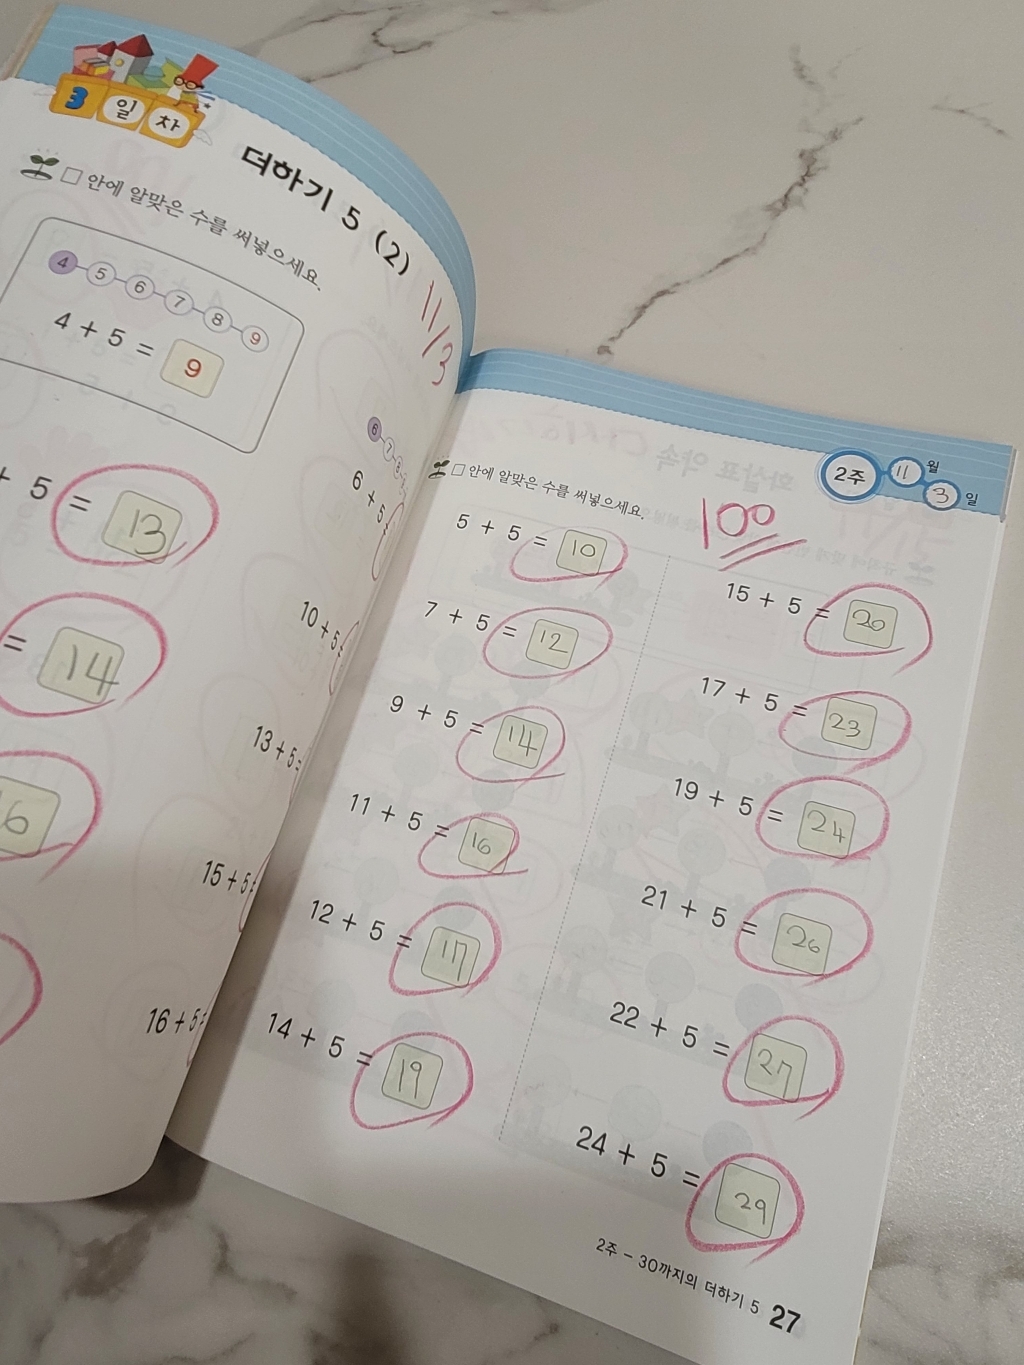 3일차
더하기 5 (2)
11/3
□ 안에 알맞은 수를 써넣으세요.
4 5 6 7 8 9
4 + 5 = 9
6 7 8
+ 5 = 13
6 + 5
= 14
10 + 5
13 + 5 =
15 + 5 =
16 + 5 =
2주 11월 3일
□ 안에 알맞은 수를 써넣으세요.
100
5 + 5 = 10
7 + 5 = 12
9 + 5 = 14
11 + 5 = 16
12 + 5 = 17
14 + 5 = 19
15 + 5 = 20
17 + 5 = 23
19 + 5 = 24
21 + 5 = 26
22 + 5 = 27
24 + 5 = 29
2주 - 30까지의 더하기 5 27